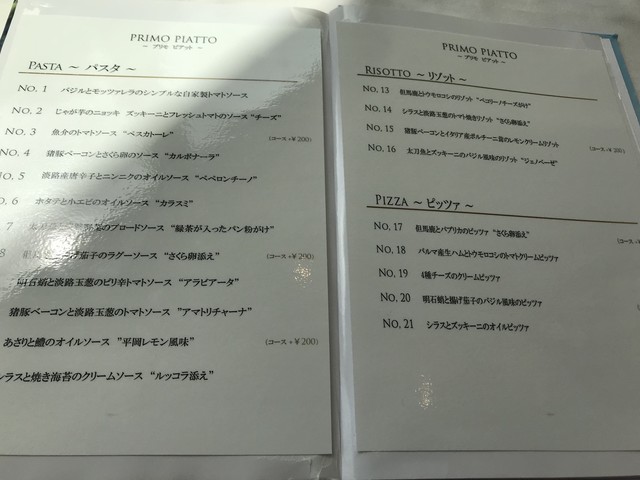 PRIMO PIATTO
～ プリモ ピアット ～
PASTA ～ パスタ ～
NO. 1 バジルとモッツァレラのシンプルな自家製トマトソース
NO. 2 じゃが芋のニョッキ ズッキーニとフレッシュトマトのソース “チーズ”
NO. 3 魚介のトマトソース “ペスカトーレ” (コース +￥200)
NO. 4 猪豚ベーコンとさくら卵のソース “カルボナーラ”
O. 5 淡路産唐辛子とニンニクのオイルソース “ペペロンチーノ”
O. 6 ホタテと小エビのオイルソース “カラスミ”
7 のブロードソース “緑茶が入ったパン粉がけ”
8 茄子のラグーソース “さくら卵添え” (コース +￥200)
明石蛸と淡路玉葱のピリ辛トマトソース “アラビアータ”
猪豚ベーコンと淡路玉葱のトマトソース “アマトリチャーナ”
あさりと鱧のオイルソース “平岡レモン風味” (コース +￥200)
シラスと焼き海苔のクリームソース “ルッコラ添え”
PRIMO PIATTO
～ プリモ ピアット ～
RISOTTO ～ リゾット ～
NO. 13 但馬鹿とトウモロコシのリゾット “ペコリーノチーズがけ”
NO. 14 シラスと淡路玉葱のトマト焼きリゾット “さくら卵添え”
NO. 15 猪豚ベーコンとイタリア産ポルチーニ茸のレモンクリームリゾット (コース +￥200)
NO. 16 太刀魚とズッキーニのバジル風味のリゾット “ジェノベーゼ”
PIZZA ～ ピッツァ ～
NO. 17 但馬鹿とパプリカのピッツァ “さくら卵添え”
NO. 18 パルマ産生ハムとトウモロコシのトマトクリームピッツァ
NO. 19 4種チーズのクリームピッツァ
NO. 20 明石蛸と揚げ茄子のバジル風味のピッツァ
NO. 21 シラスとズッキーニのオイルピッツァ